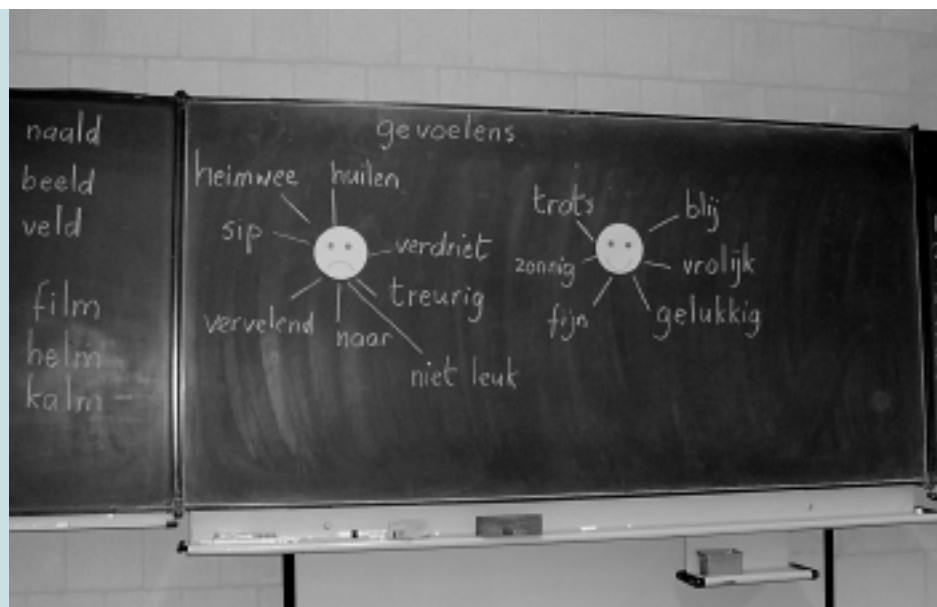 naald
beeld
veld
film
helm
kalm
gevoelens
heimwee
huilen
sip
verdriet
treurig
vervelend
naar
niet leuk
trots
blij
zonnig
vrolijk
fijn
gelukkig